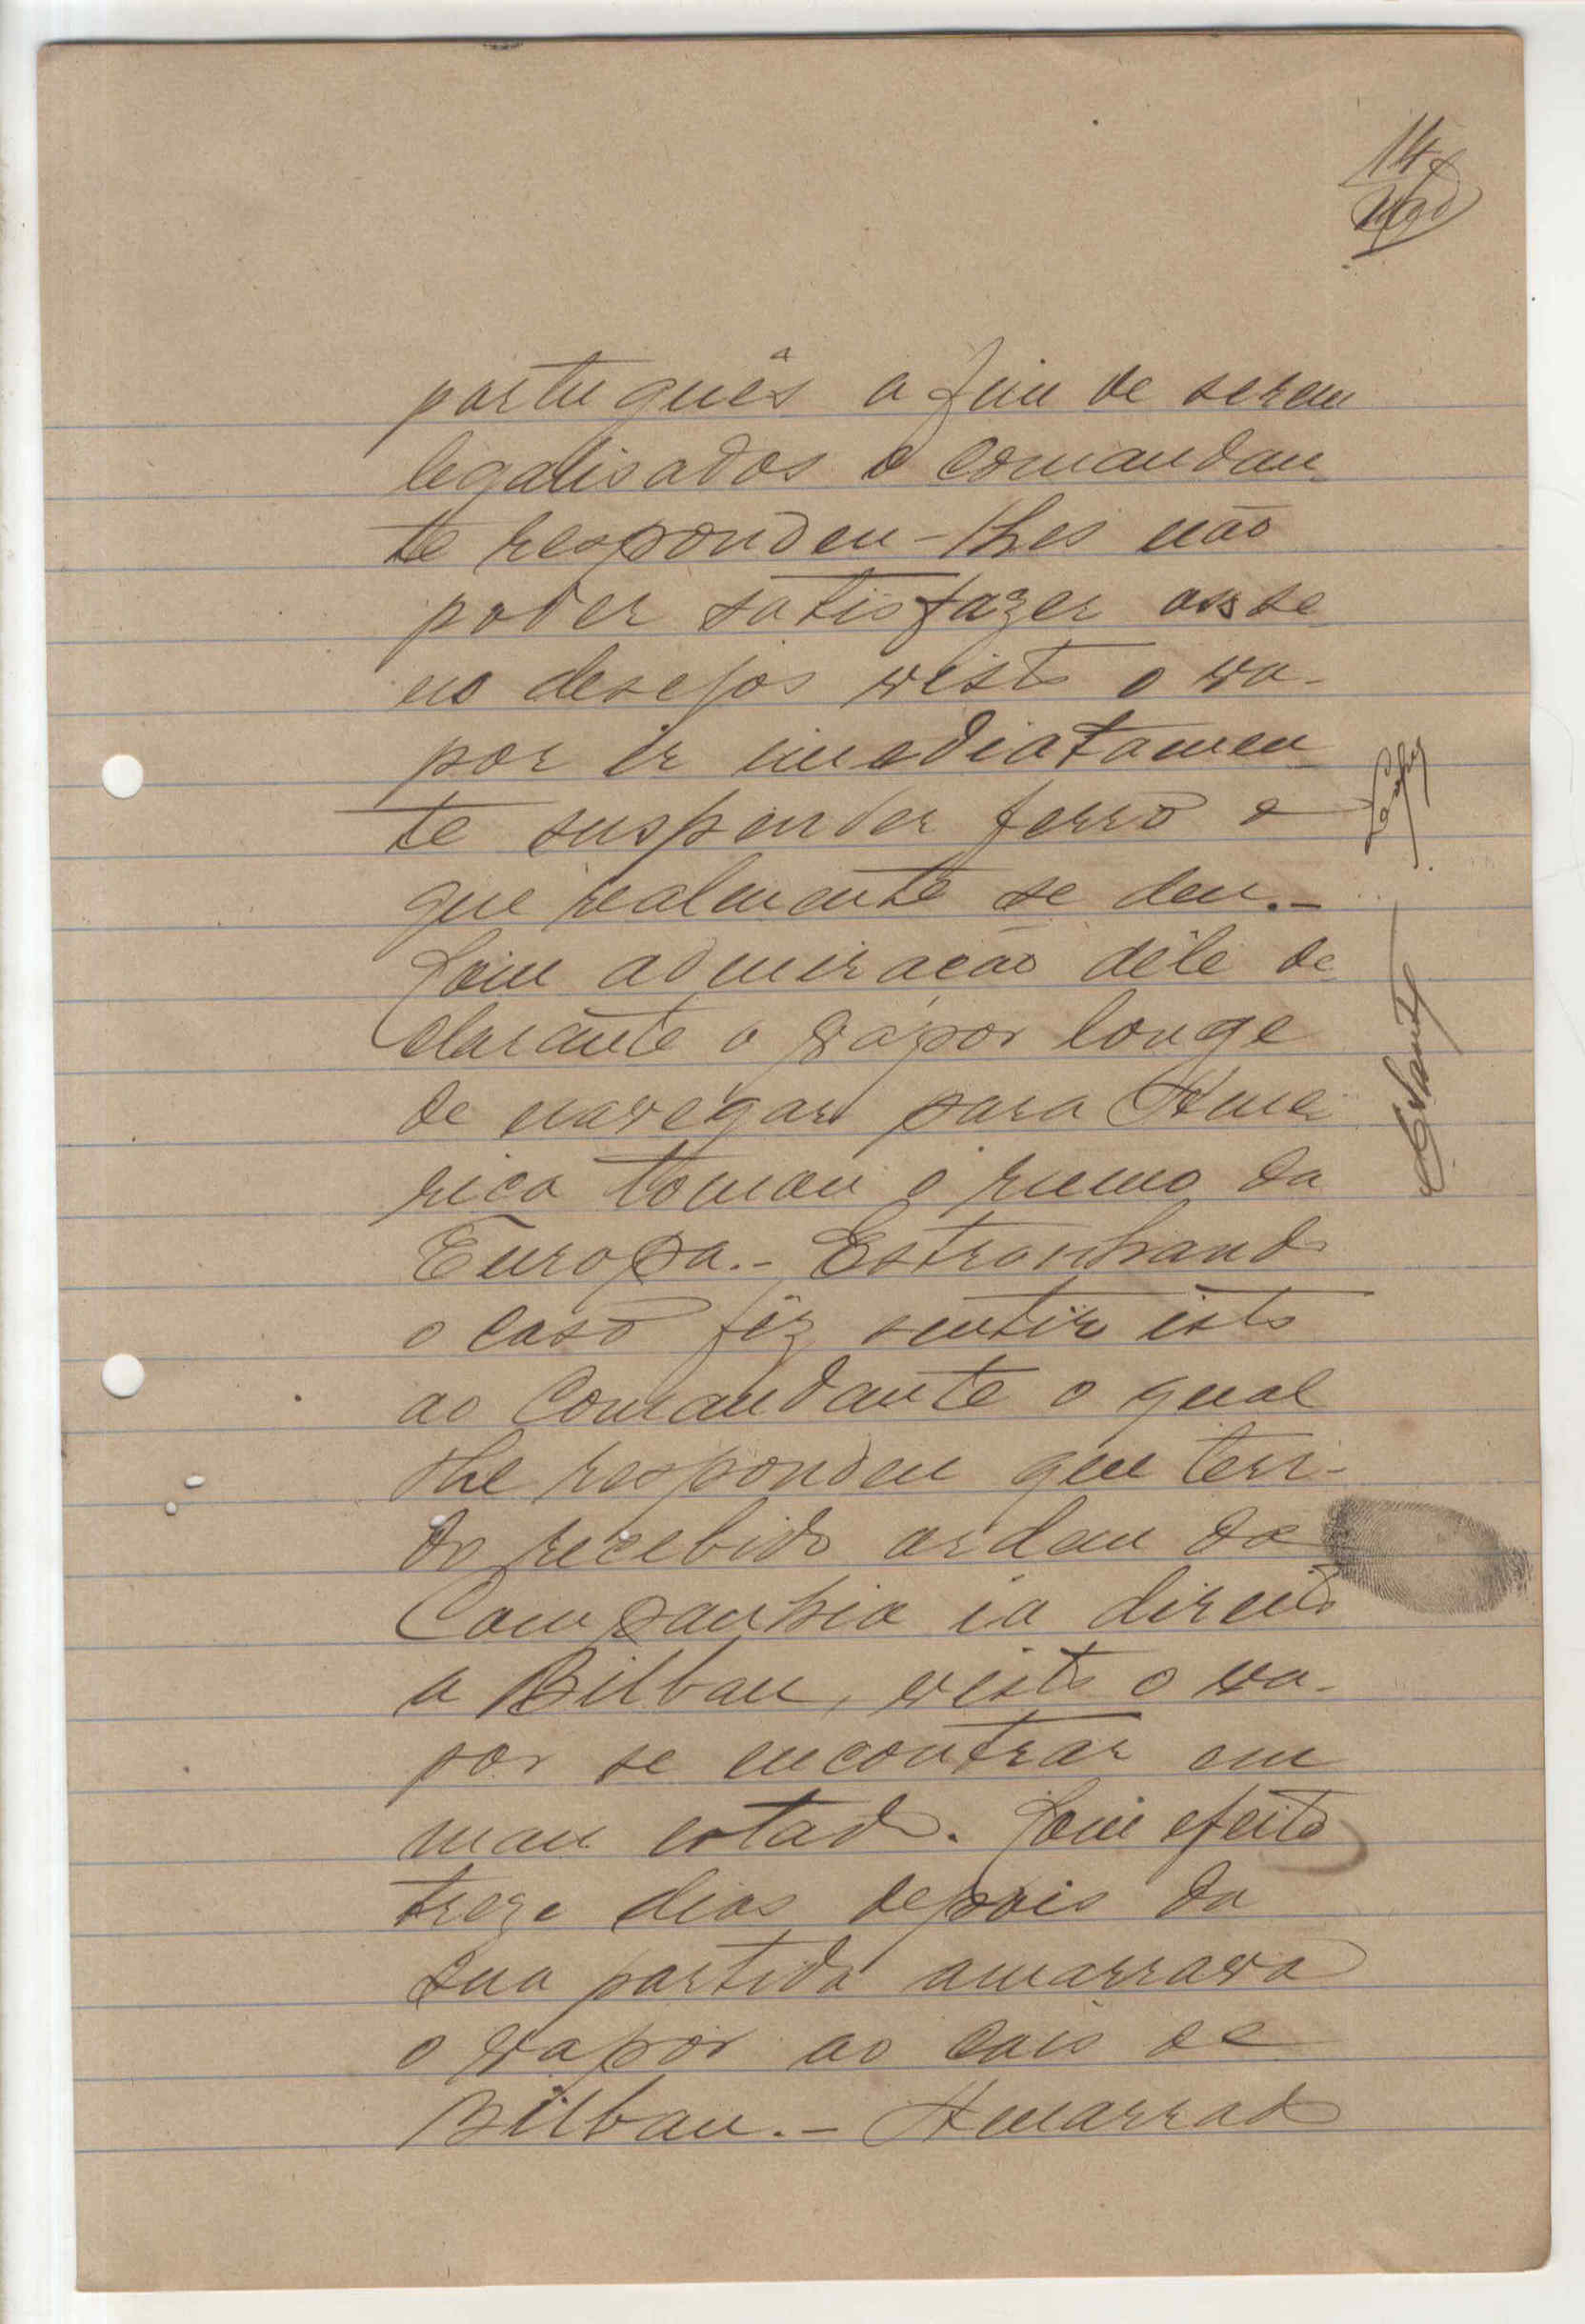 14
português a fim de serem
legalisados o Comandan-
te respondeu-lhes não
poder satisfazer os se
us desejos visto o va-
por ir imediatamen
te suspender ferro o
que realmente se deu.-
Com admiração dêle de
clarante o vapor longe
de navegar para Ame
rica tomou o rumo da
Europa.- Estranhando
o caso fez sentir isto
ao Comandante o qual
lhe respondeu que ten-
do recebido ordem da
Companhia ia direito
a Bilbau, visto o va-
por se encontrar em
mau estado. Com efeito
treze dias depois da
sua partida amarrava
o vapor ao cais de
Bilbau.- Amarrado